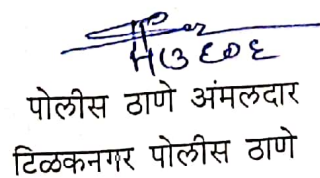 पोलीस ठाणे अंमलदार
टिळकनगर पोलीस ठाणे